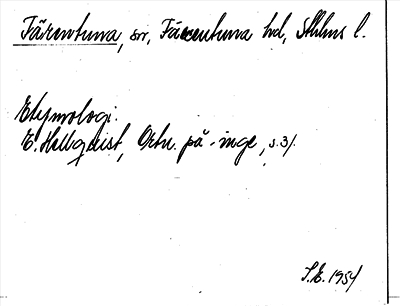 Färentuna, sn, Färentuna hd, Sthlms l.
Etymologi:
E. Hellquist, Ortn. på -inge, s. 31.
S.E. 1954